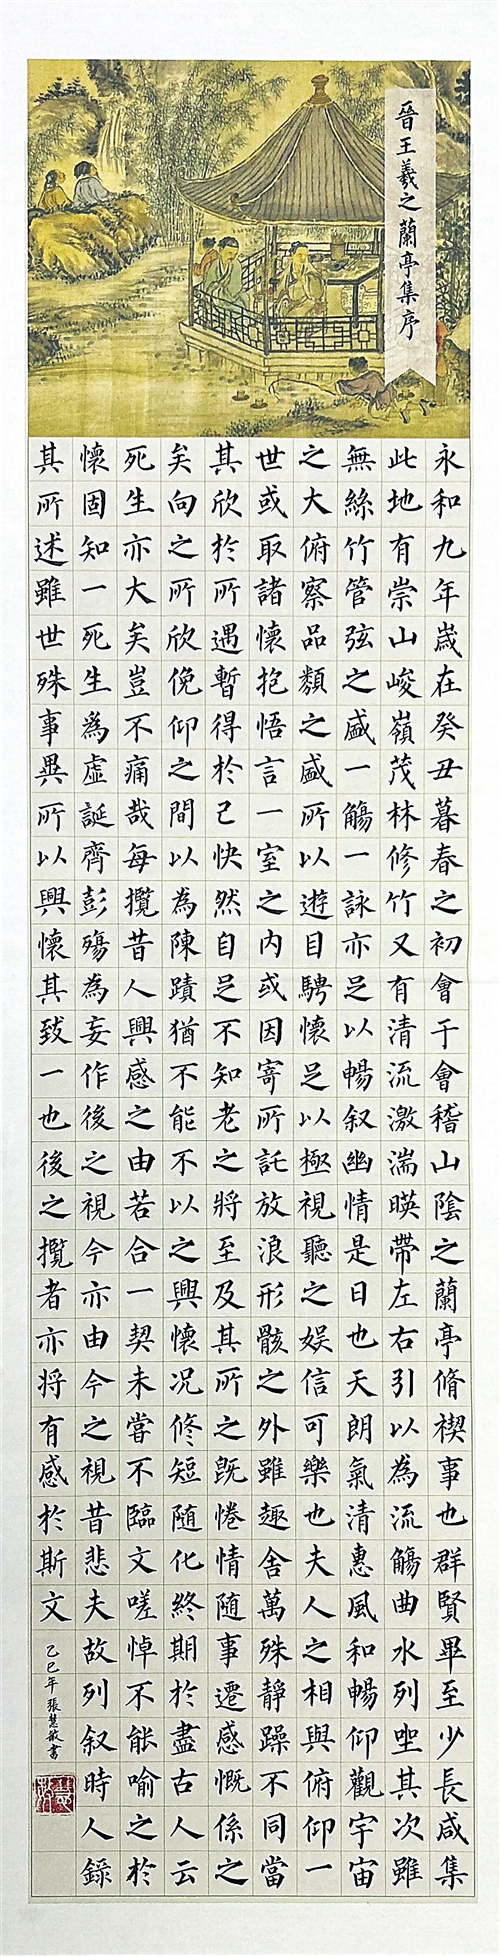 晉王羲之蘭亭集序
永和九年歲在癸丑暮春之初會于會稽山陰之蘭亭脩禊事也群賢畢至少長咸集
此地有崇山峻嶺茂林修竹又有清流激湍暎帶左右引以為流觴曲水列坐其次雖
無絲竹管弦之盛一觴一詠亦足以暢叙幽情是日也天朗氣清惠風和暢仰觀宇宙
之大俯察品類之盛所以遊目騁懷足以極視聽之娛信可樂也夫人之相與俯仰一
世或取諸懷抱悟言一室之内或因寄所託放浪形骸之外雖趣舍萬殊靜躁不同當
其欣於所遇暫得於己快然自足不知老之將至及其所之既惓情随事遷感慨係之
矣向之所欣俛仰之間以為陳蹟猶不能不以之興懷况修短随化終期於盡古人云
死生亦大矣豈不痛哉每攬昔人興感之由若合一契未嘗不臨文嗟悼不能喻之於
懷固知一死生為虛誕齊彭殤為妄作後之視今亦由今之視昔悲夫故列叙時人錄
其所述雖世殊事異所以興懷其致一也後之攬者亦将有感於斯文
乙巳年張慧敏書